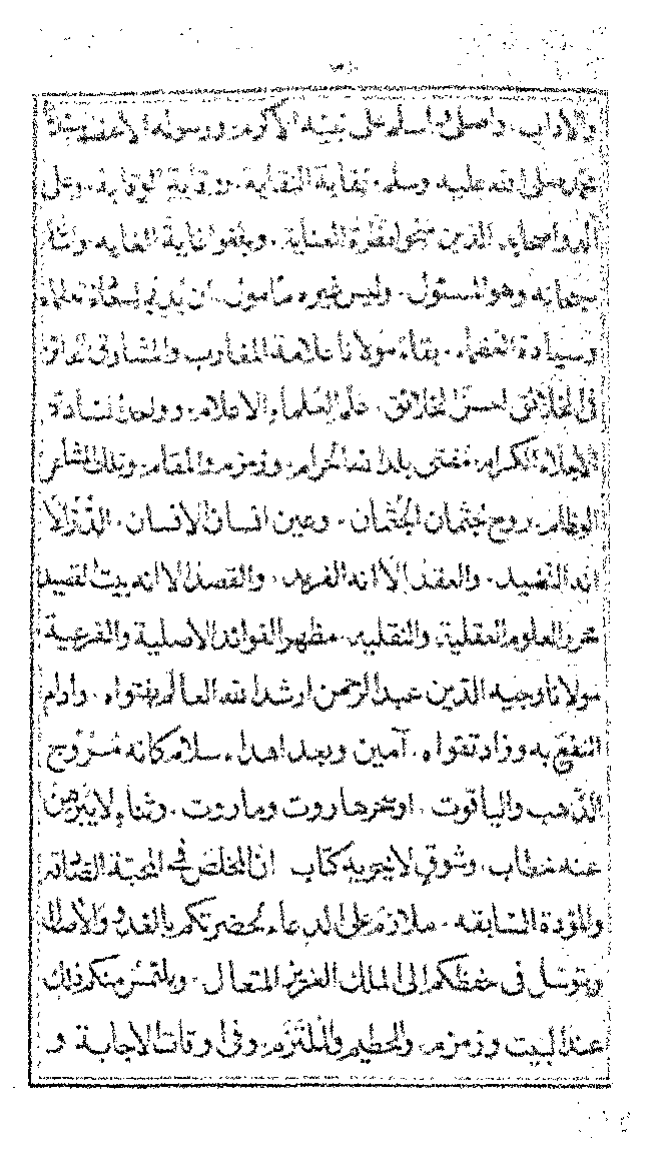 والاداب. واصلي واسلم على نبيه الاكرم ورسوله الاعظم سيدنا
محمد صلى الله عليه وسلم نقاية النقاية. ووقاية الوقاية. وعلى
آله واصحابه الذين منحوا نظرة العناية. وبلغوا غاية الغايه واسأله
سبحانه وهو المسئول. وليس غيره مأمول ان يديم
وسيادة العظماء. بقاء مولانا علامة المغارب والمشارق
فى الخلائق احسن الخلائق. علم العلماء الاعلام وواحد السادة
الاجلاء الكرام مفتى بلد الله الحرام. وزمزم والمقام وتلك المشاعر
العظام. روح جثمان الجثمان. وعين انسان الانسان. الدر الا
انه النضيد. والعقد الا انه الفريد. والقصد الا انه بيت القصيد
محرر العلوم العقلية. والنقليه. مظهر الفوائد الاصلية والفرعية
مولانا وجيه الدين عبد الرحمن ارشد الله العالم بفتواه. وادام
النفع به وزاد تقواه. آمين وبعد اهداء سلام كانه ممزوج
الذهب والياقوت. او سحر هاروت وماروت. وثناء لا يبرهن
عنه خطاب. وشوق لا يحويه كتاب ان المخلص فى المحبة الصادقه
والمودة السابقه. ملازم على الدعاء لحضرتكم بالغدو والآصال
ويتوسل فى حفظكم الى الملك العزيز المتعال. ويلتمس منكم ذلك
عند البيت وزمزم. والحطيم والملتزم. وفى اوقات الاجابة و